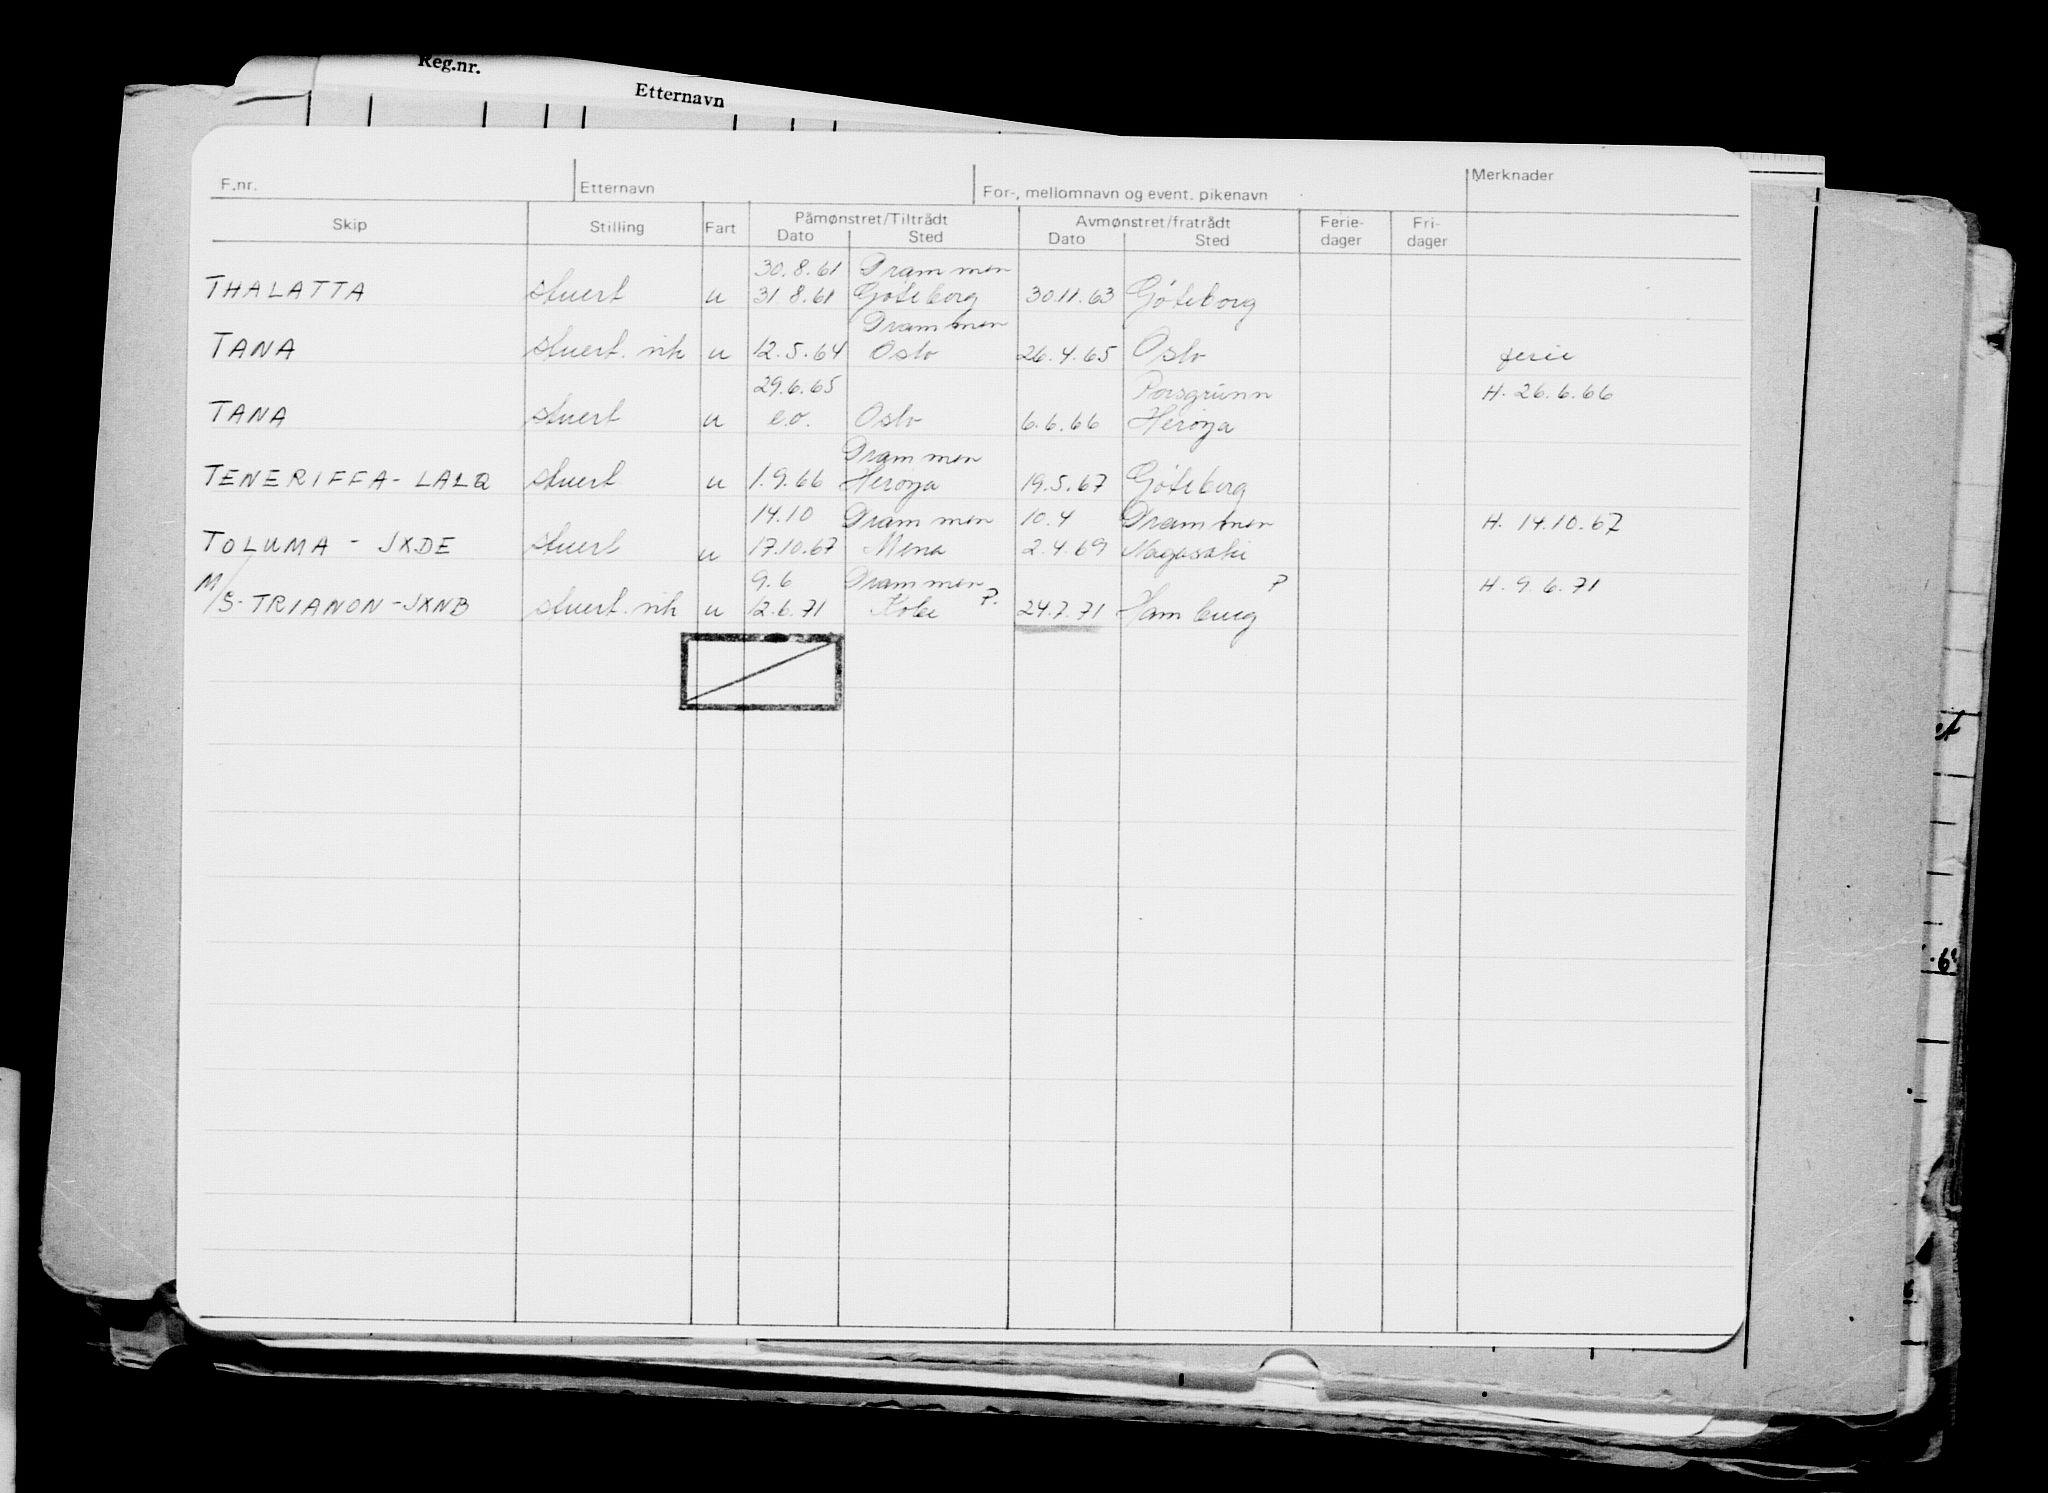 Reg.nr.
Etternavn
F.nr. Etternavn For-, mellomnavn og event. pikenavn Merknader
Skip Stilling Fart Påmønstret/Tiltrådt Avmønstret/fratrådt Ferie- Fri-
Dato Sted Dato Sted dager dager
30.8.61 Drammen
THALATTA stuert u 31 8.61 Göteborg 30.11.63 Göteborg
Drammen
TANA stuert. vik u 12.5.64 Oslo 26.4.65 Oslo ferie
29.6.65 Porsgrunn H. 26.6.66
TANA stuert u e.o. Oslo 6.6.66 Herøya
Drammen
TENERIFFA - LALQ stuert u 1.9.66 Herøya 19.5.67 Göteborg
14.10 Drammen 10.4 Drammen H. 14.10.67
TOLUMA - JXDE stuert u 17.10.67 Mena 2.4.69 Nagasaki
9.6 Drammen ? H. 9.6.71
M/S- TRIANON - JXNB stuert. vik u 12.6.71 Kobe ?. 24.7.71 Hamburg